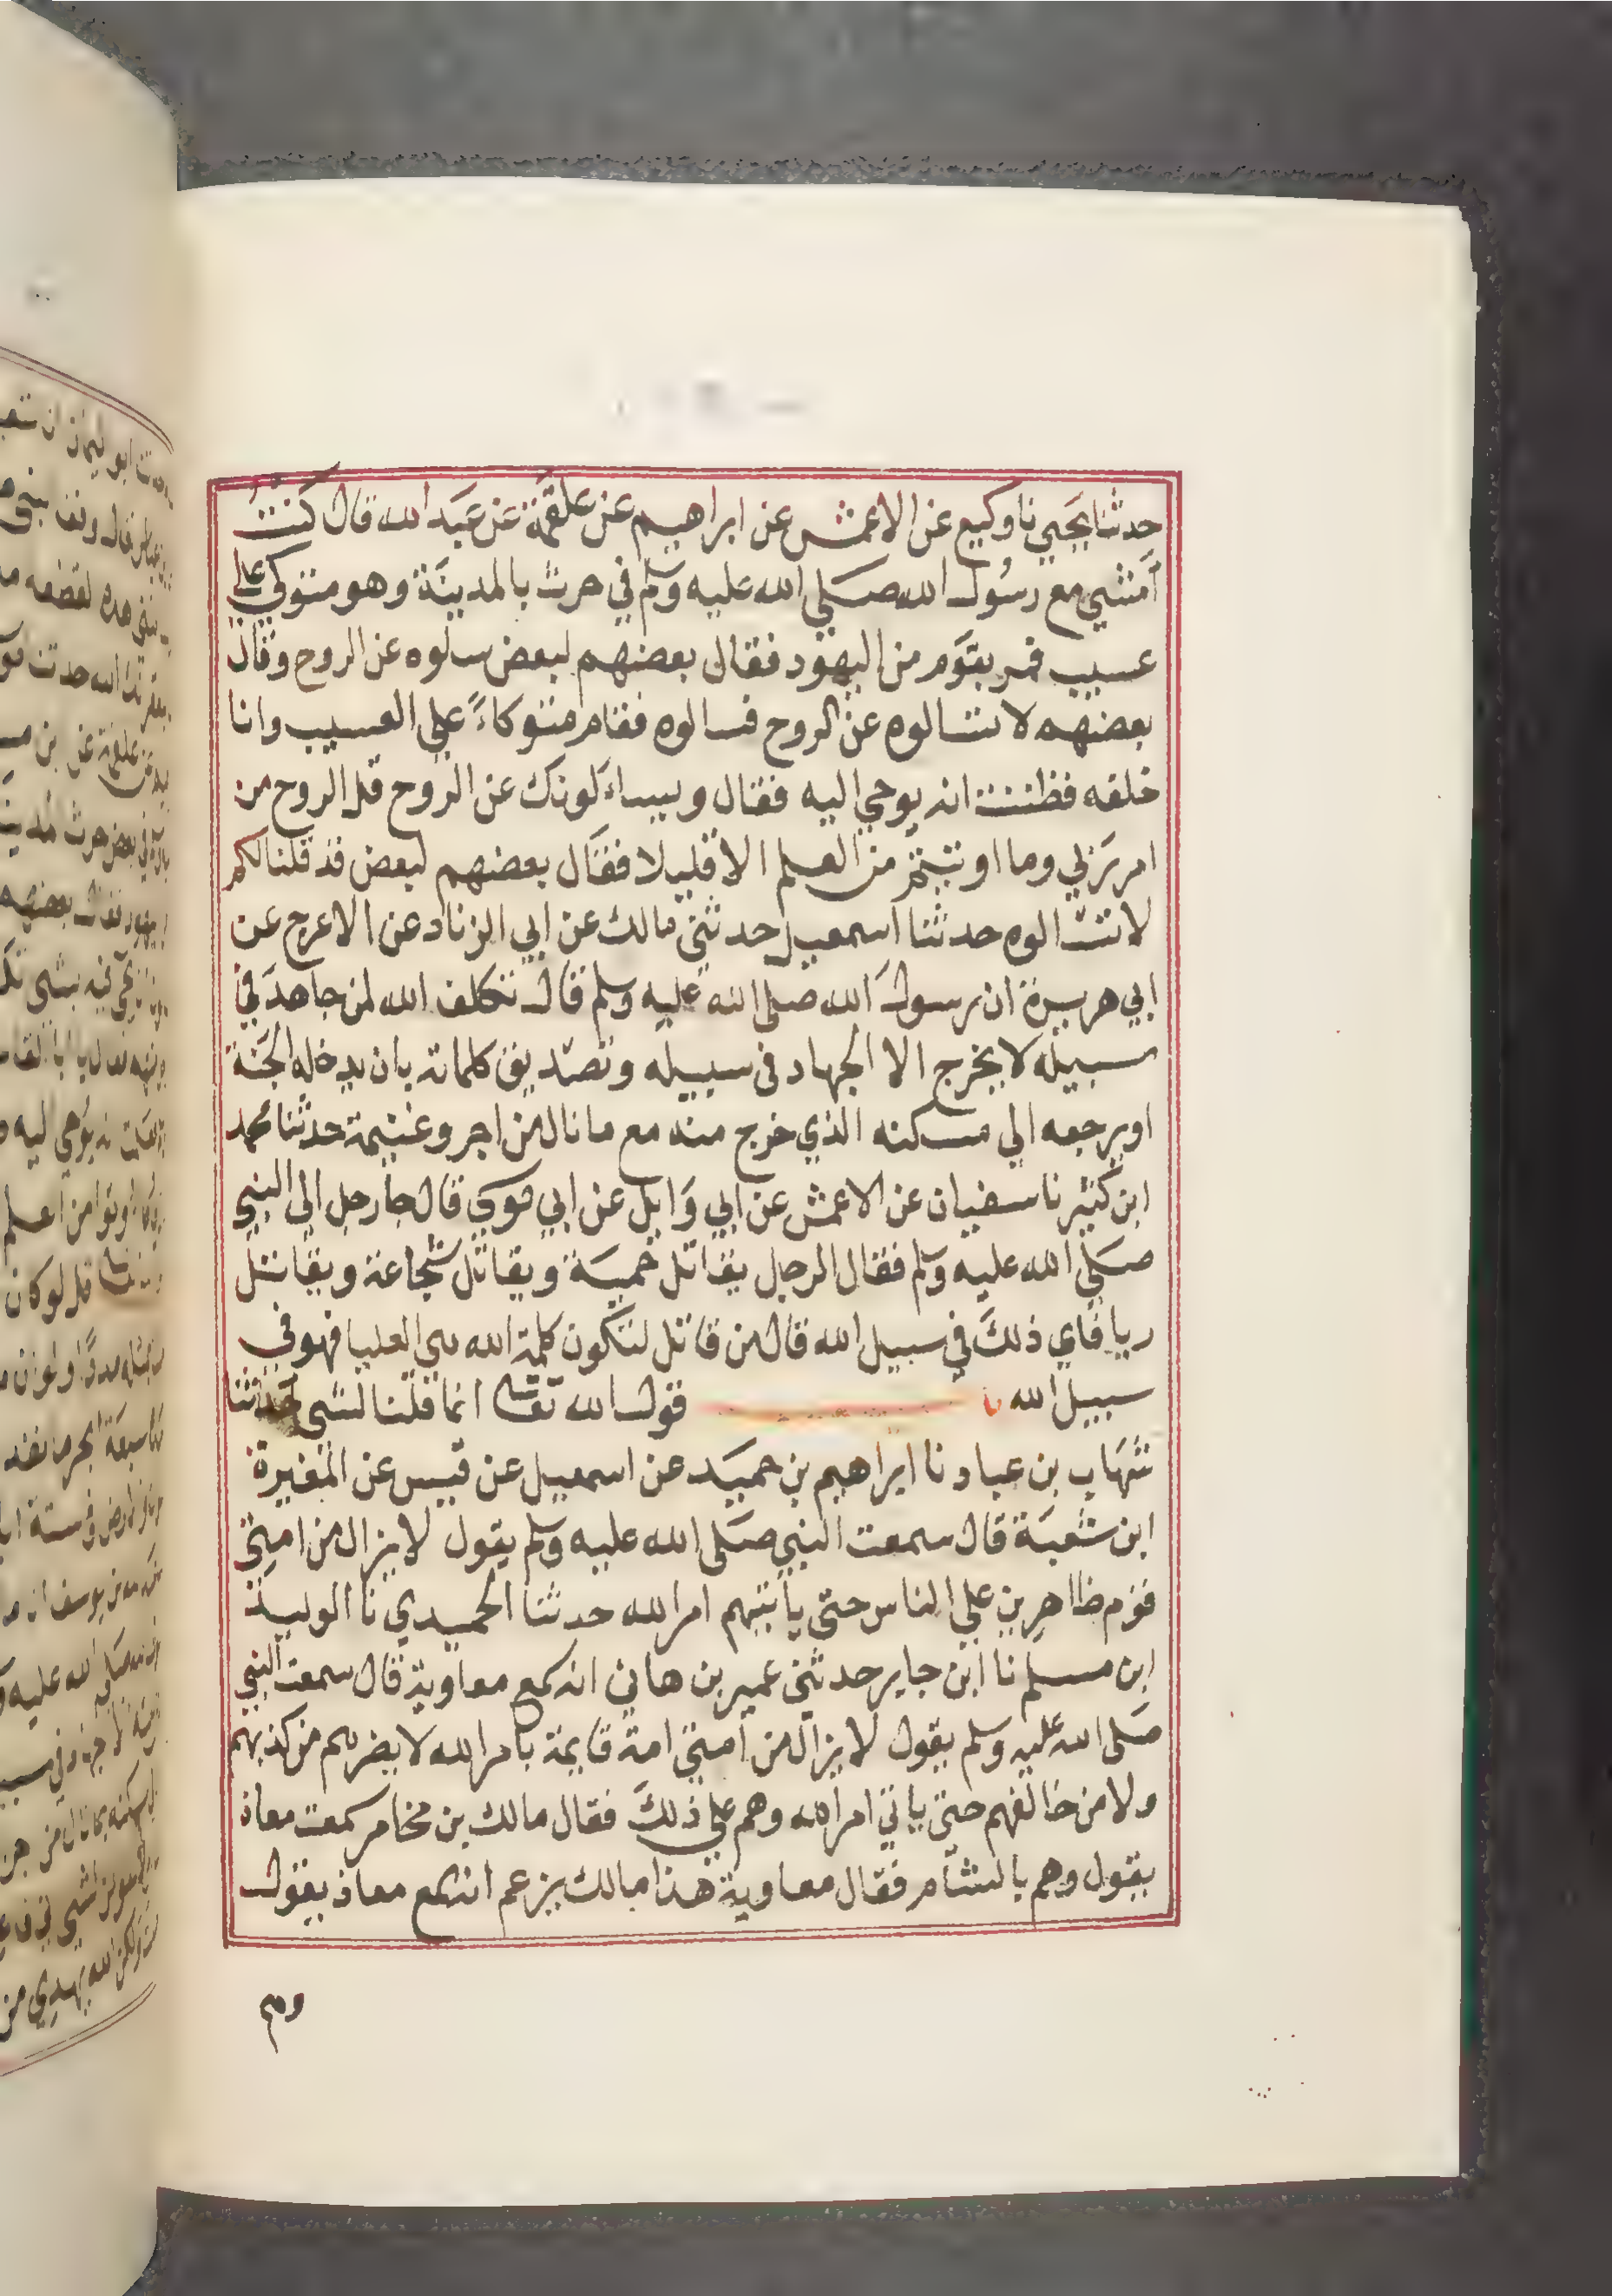 حدثنا يحيي نا وكيع عن الاعمش عن ابراهيم عن علقمة عن عبد الله قال كنت
أمشي مع رسول الله صلي الله عليه وسلم في حرث بالمدينة وهو متوكي علي
عسيب فمر بقوم من اليهود فقال بعضهم لبعض سالوه عن الروح وقال
بعضهم لا تسالوه عن الروح فسالوه فقام متوكاءً علي العسيب وانا
خلفه فظننت انه يوحي اليه فقال ويساءلونك عن الروح قل الروح من
امر ربي وما اوتيتم من العلم الا قليلا فقال بعضهم لبعض قد قلنا لكم
لا تسالوه حدثنا اسمعيل حدثني مالك عن ابي الزناد عن الاعرج عن
ابي هريرة ان رسول الله صلي الله عليه وسلم قال تكلف الله لمن جاهد في
سبيله لا يخرج الا الجهاد في سبيله وتصديق كلماته بان يدخله الجنة
او يرجعه الي مسكنه الذي خرج منه مع ما نال من اجر وغنيمة حدثنا محمد
ابن كثير نا سفيان عن الاعمش عن ابي وايل عن ابي موسي قال جا رجل الي النبي
صلي الله عليه وسلم فقال الرجل يقاتل حمية ويقاتل شجاعة ويقاتل
ريا فاي ذلك في سبيل الله قال من قاتل لتكون كلمة الله هي العليا فهو في
سبيل الله قول الله تعالى انما قلنا لشي حدثنا
شهاب بن عباد نا ابراهيم بن حميد عن اسمعيل عن قيس عن المغيرة
ابن شعبة قال سمعت النبي صلي الله عليه وسلم يقول لا يزال من امتي
قوم ظاهرين علي الناس حتي يأتيهم امر الله حدثنا الحميدي نا الوليد
ابن مسلم نا ابن جابر حدثني عمير بن هاني انه سمع معاوية قال سمعت النبي
صلي الله عليه وسلم يقول لا يزال من امتي امة قايمة بامر الله لا يضرهم من كذبهم
ولا من خالفهم حتي ياتي امر الله وهم علي ذلك فقال مالك بن مخامر سمعت معاذ
يقول وهم بالشام فقال معاوية هذا مالك يزعم انه سمع معاذ يقول
وهم